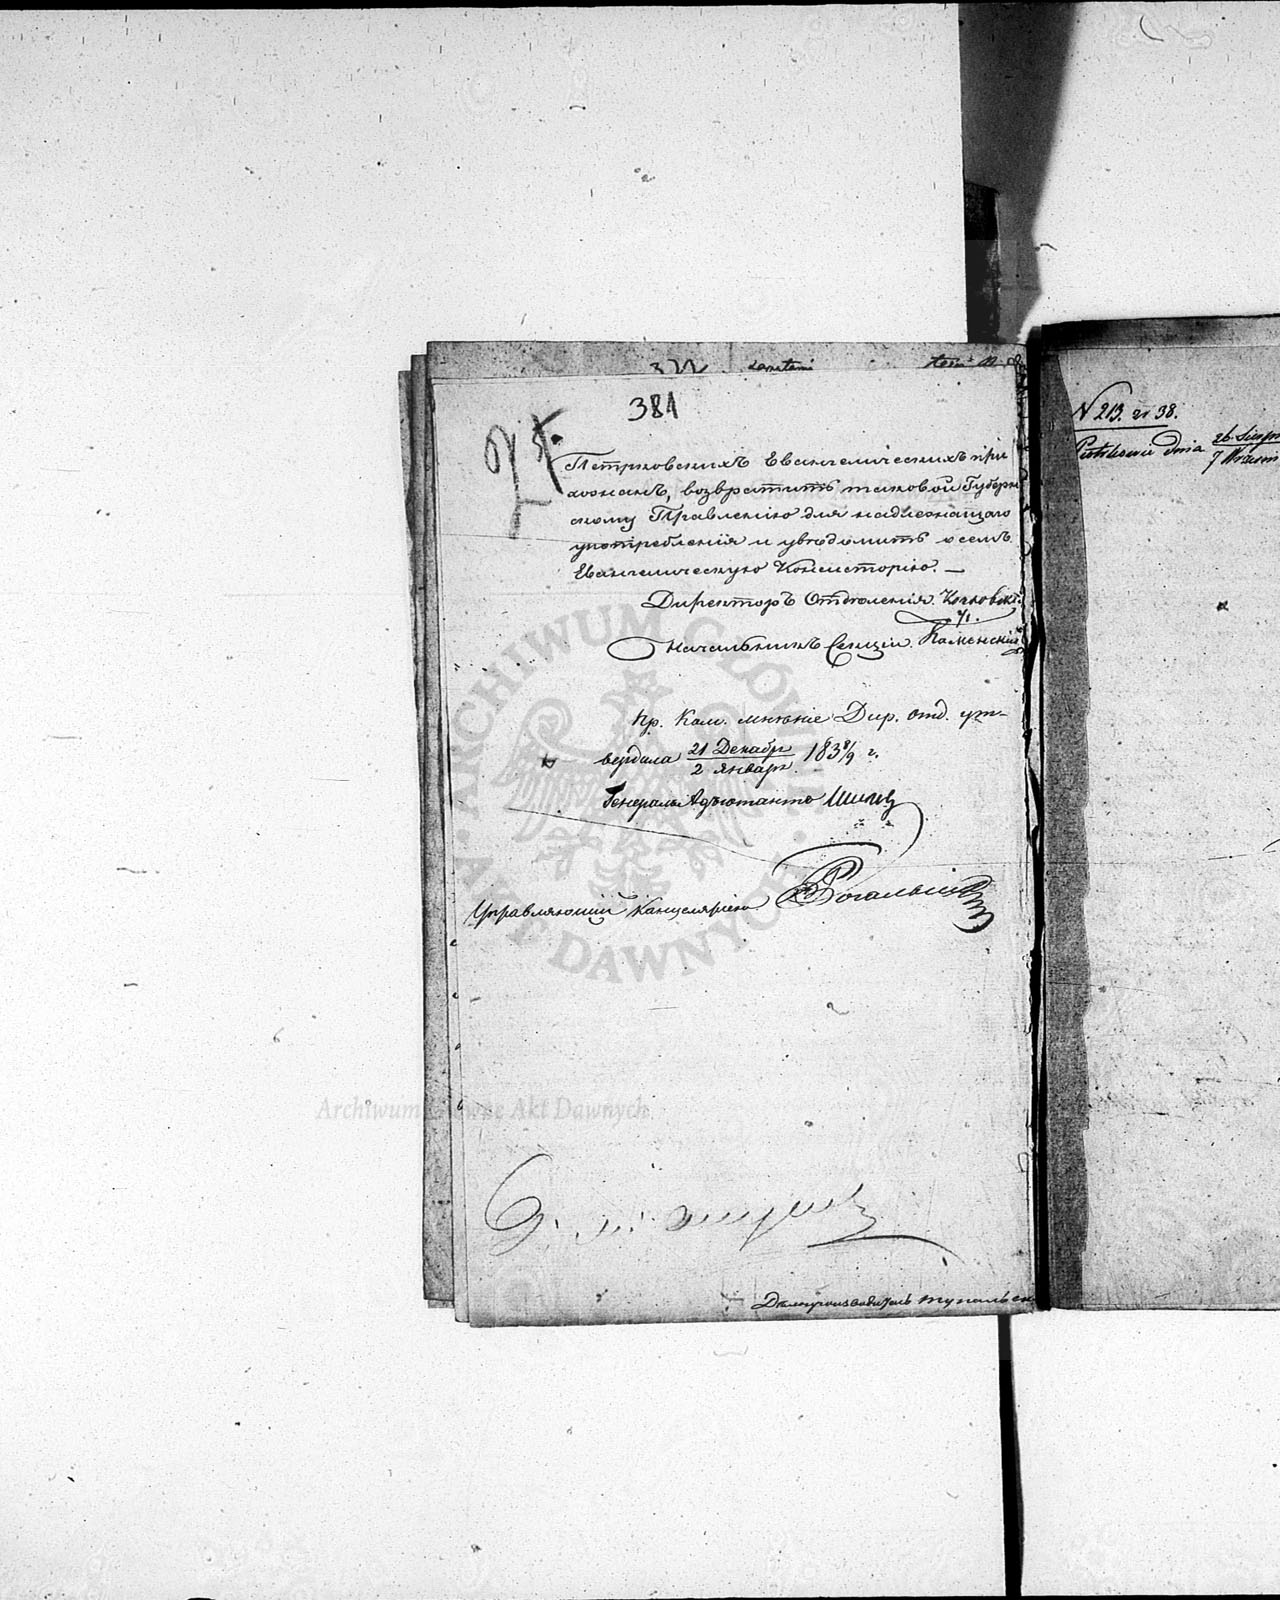 381
Петрковскихъ Евангелическихъ при
хожанъ, возвратить таковой Губерн
скому Правленію для надлежащаго
употребленія и увѣдомить о семъ
Евангелическую Консисторію. —
Директоръ Отдѣленія
Начальникъ Секціи Каменскій
Пр. Ком. мнѣніе Дир. отд. ут-
вердила 21 Декабр / 2 Январ. 1838/9 г.
Генералъ Адъютантъ Шипов
Управляющій Канцеляріею
Дѣлопроизводитель
N 213. 38.
Dnia 26 / 7
ARCHIWUM GŁÓWNE AKT DAWNYCH
Archiwum Główne Akt Dawnych